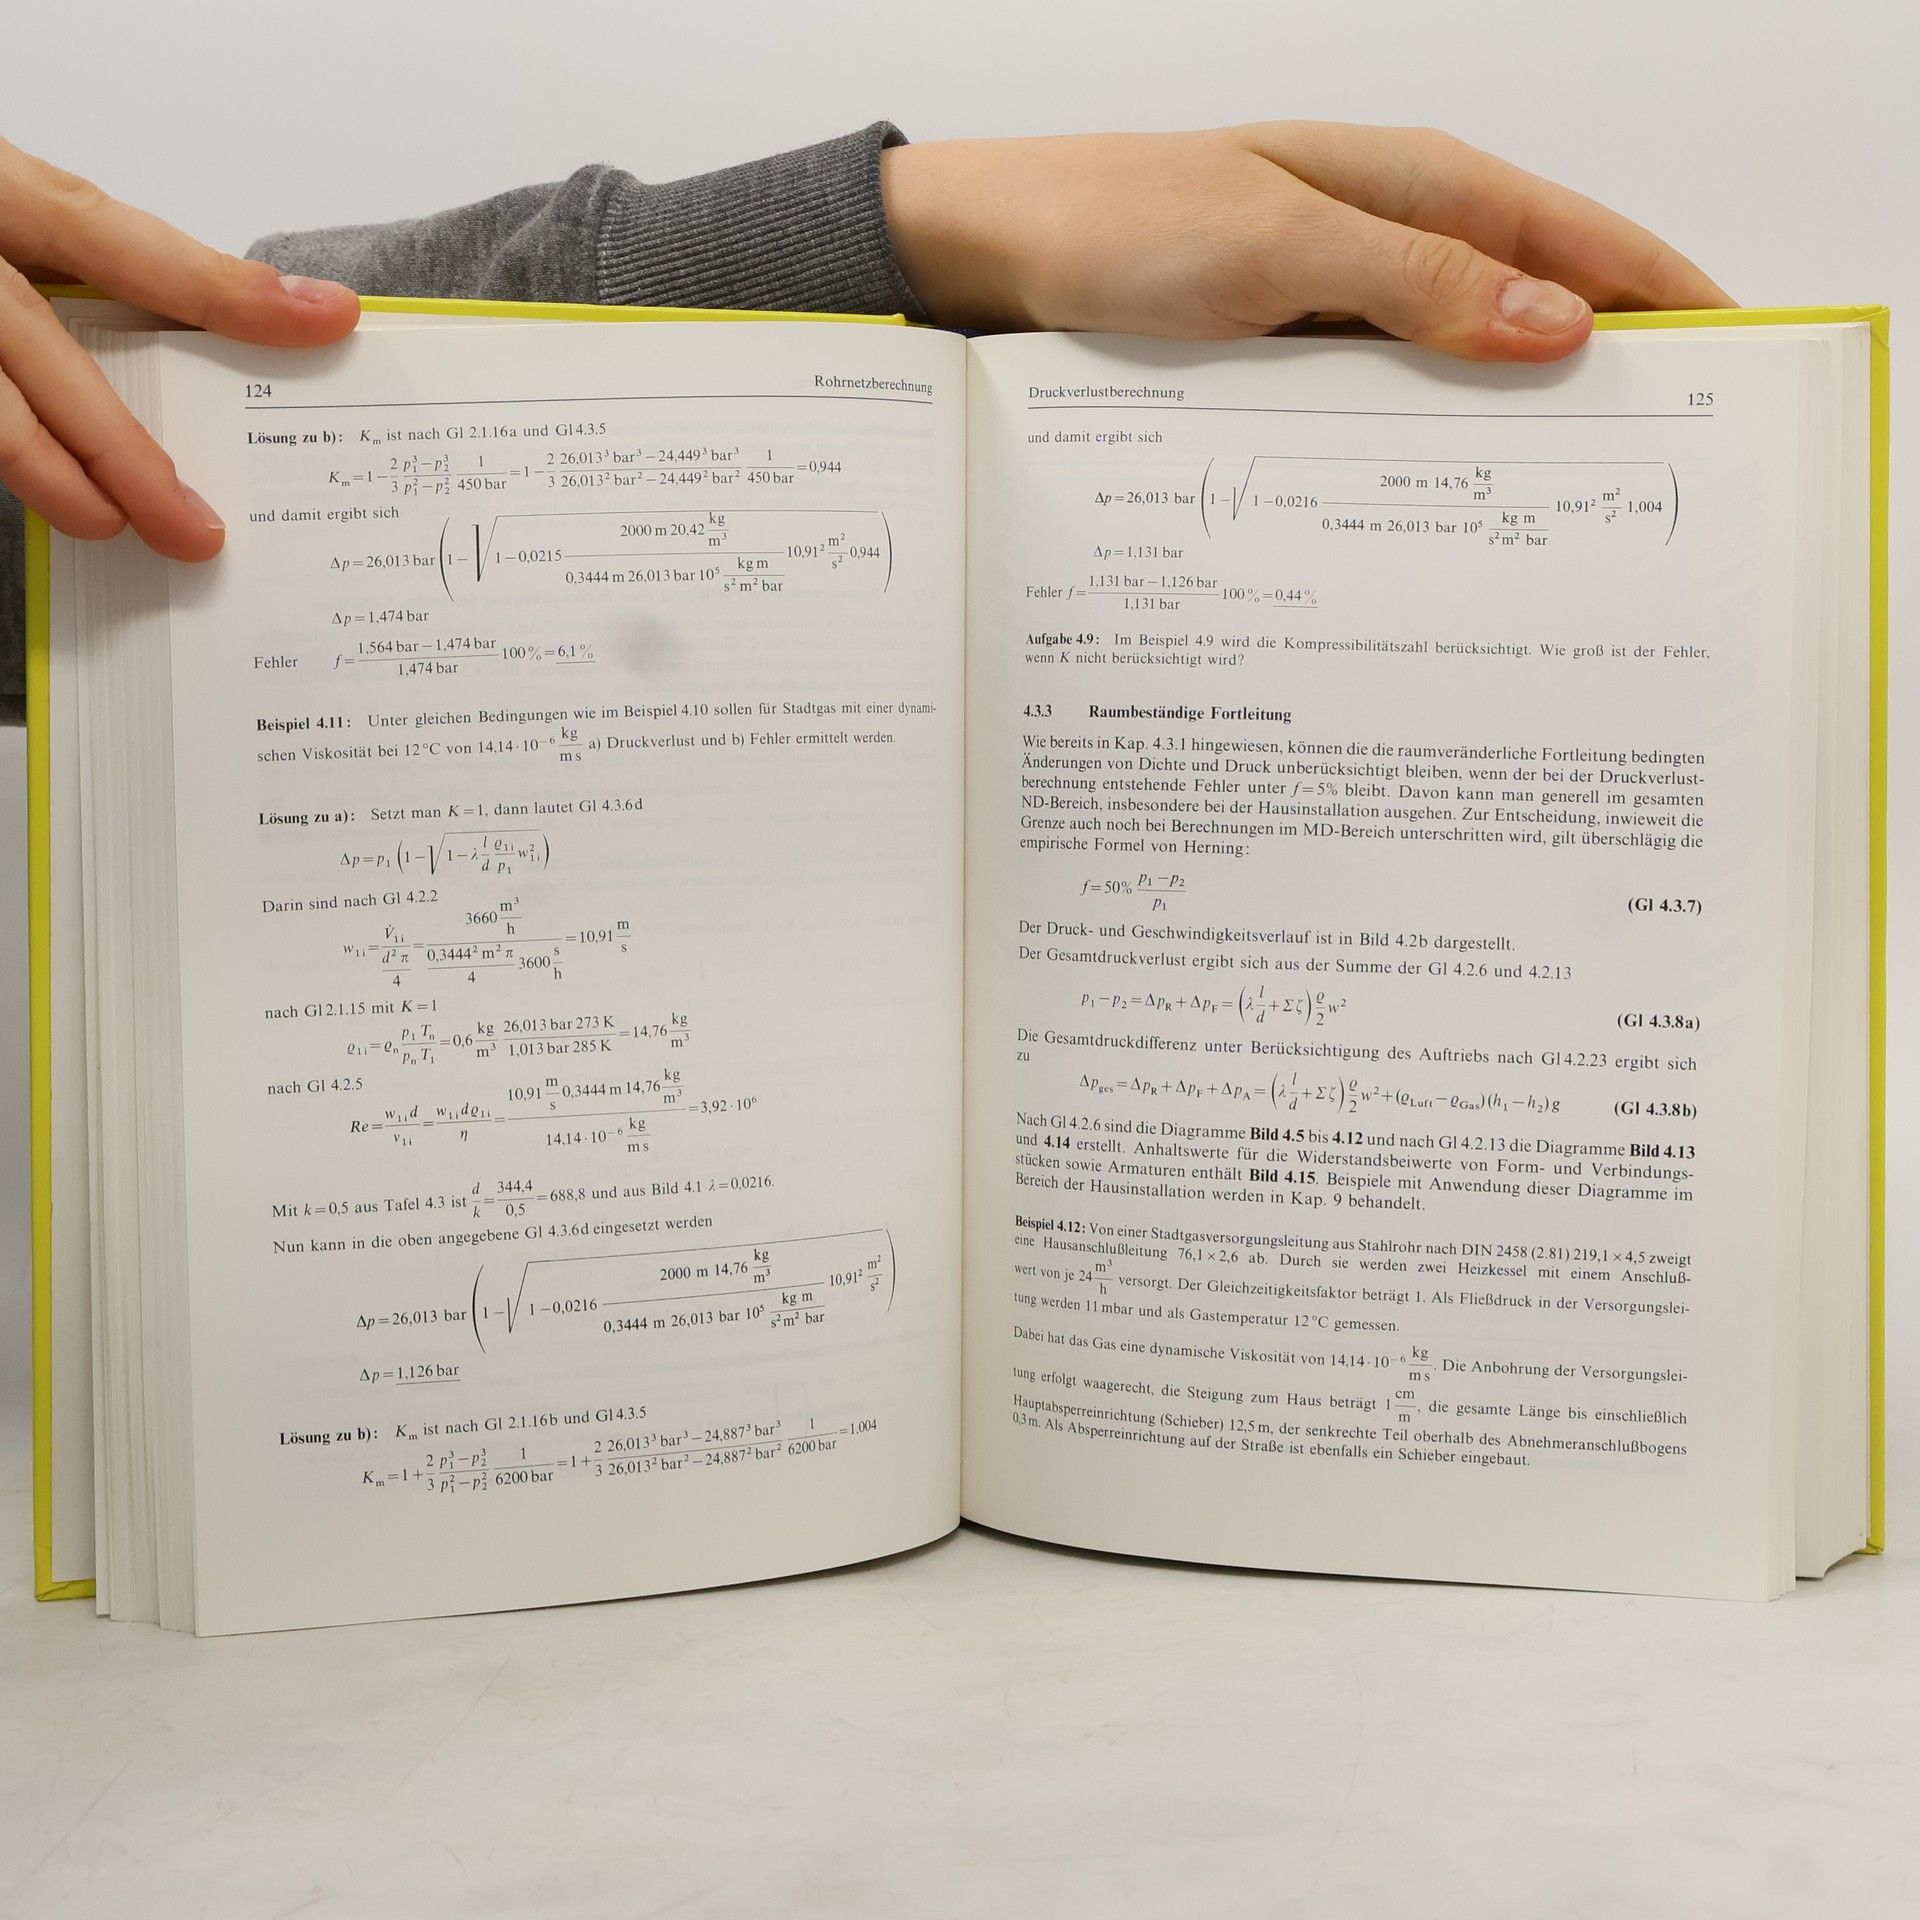 124 Rohrnetzberechnung
Lösung zu b): K_m ist nach Gl 2.1.16a und Gl 4.3.5
K_m = 1 − 2/3 (p₁³ − p₂³)/(p₁² − p₂²) 1/(450 bar) = 1 − 2/3 (26,013³ bar³ − 24,449³ bar³)/(26,013² bar² − 24,449² bar²) 1/(450 bar) = 0,944
und damit ergibt sich
Δp = 26,013 bar (1 − √(1 − 0,0215 (2000 m 20,42 kg/m³)/(0,3444 m 26,013 bar 10⁵ kg m/(s² m² bar)) 10,91² m²/s² 0,944))
Δp = 1,474 bar
Fehler f = (1,564 bar − 1,474 bar)/(1,474 bar) 100 % = 6,1 %
Beispiel 4.11: Unter gleichen Bedingungen wie im Beispiel 4.10 sollen für Stadtgas mit einer dynami-
schen Viskosität bei 12 °C von 14,14 · 10⁻⁶ kg/(m s) a) Druckverlust und b) Fehler ermittelt werden.
Lösung zu a): Setzt man K = 1, dann lautet Gl 4.3.6d
Δp = p₁ (1 − √(1 − λ l/d ϱ₁ᵢ/p₁ w₁ᵢ²))
Darin sind nach Gl 4.2.2
w₁ᵢ = V̇₁ᵢ/(d² π/4) = (3660 m³/h)/((0,3444² m² π)/4 3600 s/h) = 10,91 m/s
nach Gl 2.1.15 mit K = 1
ϱ₁ᵢ = ϱₙ (p₁ Tₙ)/(pₙ T₁) = 0,6 kg/m³ (26,013 bar 273 K)/(1,013 bar 285 K) = 14,76 kg/m³
nach Gl 4.2.5
Re = (w₁ᵢ d)/ν₁ᵢ = (w₁ᵢ d ϱ₁ᵢ)/η = (10,91 m/s 0,3444 m 14,76 kg/m³)/(14,14 · 10⁻⁶ kg/(m s)) = 3,92 · 10⁶
Mit k = 0,5 aus Tafel 4.3 ist d/k = 344,4/0,5 = 688,8 und aus Bild 4.1 λ = 0,0216.
Nun kann in die oben angegebene Gl 4.3.6d eingesetzt werden
Δp = 26,013 bar (1 − √(1 − 0,0216 (2000 m 14,76 kg/m³)/(0,3444 m 26,013 bar 10⁵ kg m/(s² m² bar)) 10,91² m²/s²))
Δp = 1,126 bar
Lösung zu b): K_m ist nach Gl 2.1.16b und Gl 4.3.5
K_m = 1 + 2/3 (p₁³ − p₂³)/(p₁² − p₂²) 1/(6200 bar) = 1 + 2/3 (26,013³ bar³ − 24,887³ bar³)/(26,013² bar² − 24,887² bar²) 1/(6200 bar) = 1,004
Druckverlustberechnung 125
und damit ergibt sich
Δp = 26,013 bar (1 − √(1 − 0,0216 (2000 m 14,76 kg/m³)/(0,3444 m 26,013 bar 10⁵ kg m/(s² m² bar)) 10,91² m²/s² 1,004))
Δp = 1,131 bar
Fehler f = (1,131 bar − 1,126 bar)/(1,131 bar) 100 % = 0,44 %
Aufgabe 4.9: Im Beispiel 4.9 wird die Kompressibilitätszahl berücksichtigt. Wie groß ist der Fehler,
wenn K nicht berücksichtigt wird?
4.3.3 Raumbeständige Fortleitung
Wie bereits in Kap. 4.3.1 hingewiesen, können die die raumveränderliche Fortleitung bedingten
Änderungen von Dichte und Druck unberücksichtigt bleiben, wenn der bei der Druckverlust-
berechnung entstehende Fehler unter f = 5% bleibt. Davon kann man generell im gesamten
ND-Bereich, insbesondere bei der Hausinstallation ausgehen. Zur Entscheidung, inwieweit die
Grenze auch noch bei Berechnungen im MD-Bereich unterschritten wird, gilt überschlägig die
empirische Formel von Herning:
f = 50% (p₁ − p₂)/p₁ (Gl 4.3.7)
Der Druck- und Geschwindigkeitsverlauf ist in Bild 4.2b dargestellt.
Der Gesamtdruckverlust ergibt sich aus der Summe der Gl 4.2.6 und 4.2.13
p₁ − p₂ = Δp_R + Δp_F = (λ l/d + Σζ) ϱ/2 w² (Gl 4.3.8a)
Die Gesamtdruckdifferenz unter Berücksichtigung des Auftriebs nach Gl 4.2.23 ergibt sich
zu
Δp_ges = Δp_R + Δp_F + Δp_A = (λ l/d + Σζ) ϱ/2 w² + (ϱ_Luft − ϱ_Gas)(h₁ − h₂) g (Gl 4.3.8b)
Nach Gl 4.2.6 sind die Diagramme Bild 4.5 bis 4.12 und nach Gl 4.2.13 die Diagramme Bild 4.13
und 4.14 erstellt. Anhaltswerte für die Widerstandsbeiwerte von Form- und Verbindungs-
stücken sowie Armaturen enthält Bild 4.15. Beispiele mit Anwendung dieser Diagramme im
Bereich der Hausinstallation werden in Kap. 9 behandelt.
Beispiel 4.12: Von einer Stadtgasversorgungsleitung aus Stahlrohr nach DIN 2458 (2.81) 219,1 × 4,5 zweigt
eine Hausanschlußleitung 76,1 × 2,6 ab. Durch sie werden zwei Heizkessel mit einem Anschluß-
wert von je 24 m³/h versorgt. Der Gleichzeitigkeitsfaktor beträgt 1. Als Fließdruck in der Versorgungslei-
tung werden 11 mbar und als Gastemperatur 12 °C gemessen.
Dabei hat das Gas eine dynamische Viskosität von 14,14 · 10⁻⁶ kg/(m s). Die Anbohrung der Versorgungslei-
tung erfolgt waagerecht, die Steigung zum Haus beträgt 1 cm/m, die gesamte Länge bis einschließlich
Hauptabsperreinrichtung (Schieber) 12,5 m, der senkrechte Teil oberhalb des Abnehmeranschlußbogens
0,3 m. Als Absperreinrichtung auf der Straße ist ebenfalls ein Schieber eingebaut.